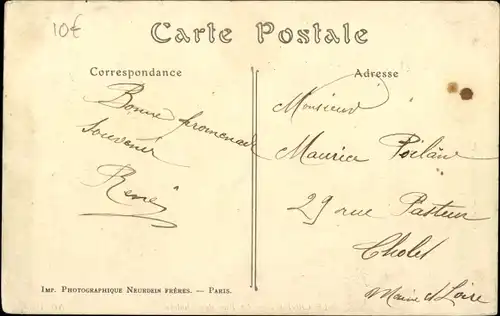 10€
Carte Postale
Correspondance
Adresse
Bonne promenade
Souvenir
René
Monsieur
Maurice Poilâne
29 rue Pasteur
Cholet
Maine et Loire
Imp. Photographique Neurdein Frères. — Paris.